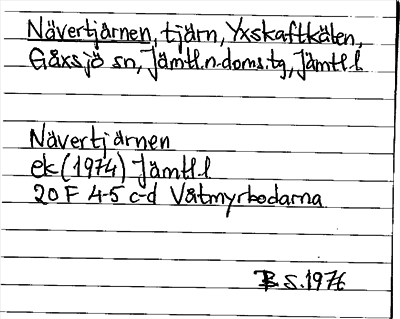 Nävertjärnen, tjärn, Yxskaftkälen,
Gåxsjö sn, Jämtl.n.doms.tg, Jämtl.l
Nävertjärnen
ek (1974) Jämtl.l
20 F 4-5 c-d Våtmyrbodarna
B S. 1976